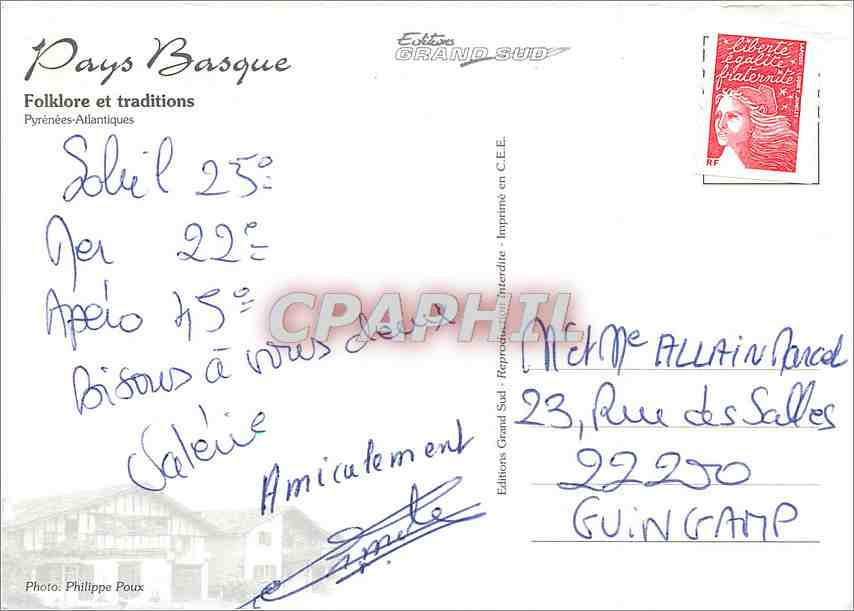 Pays Basque
Folklore et traditions
Pyrénées-Atlantiques
Editions
GRAND SUD
liberté
égalité
fraternité
RF
Soleil 25°
Mer 22°
Apéro 45°
Bisous à vous deux
Valérie
Amicalement
CPAPHIL
Editions Grand Sud - Reproduction Interdite - Imprimé en C.E.E.
Mr et Me ALLAIN Marcel
23, Rue des Salles
22250
GUINGAMP
Photo: Philippe Poux